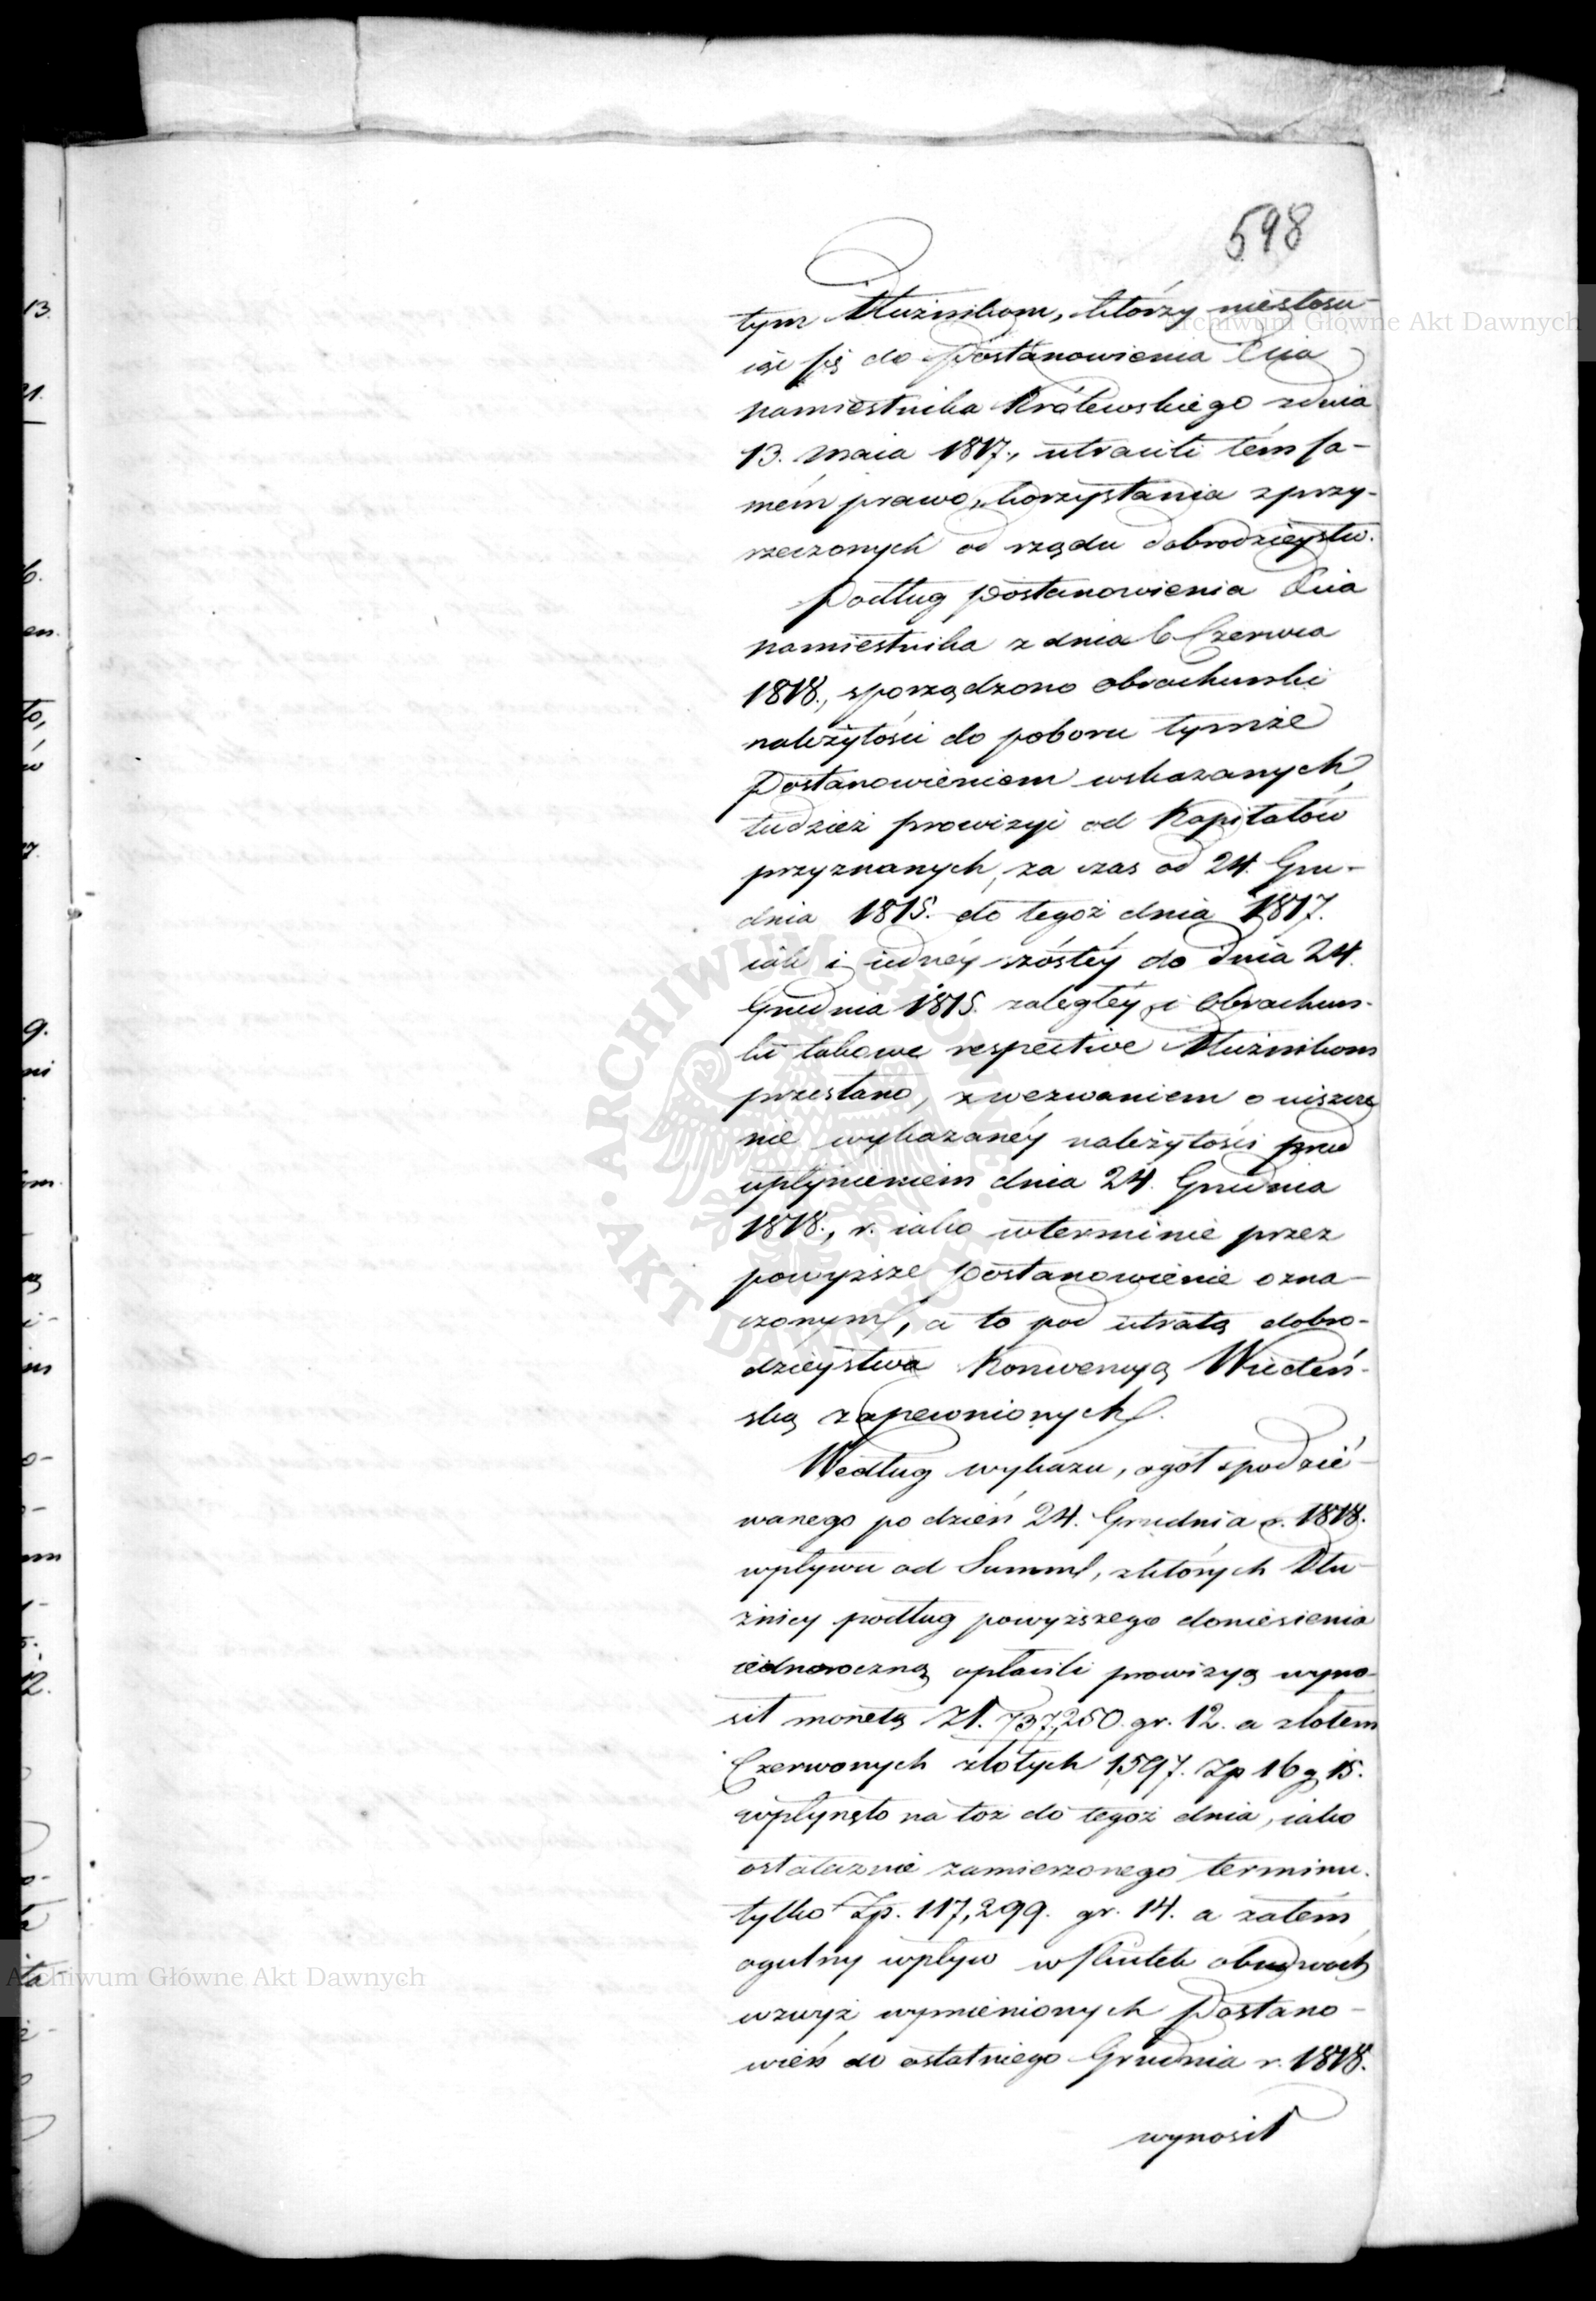 598
tym Dłużnikom, którzy niestosu-
iąc się do Postanowienia Xcia
Namiestnika Królewskiego zdnia
13. Maia 1817., utracili tém sa-
mém prawo, korzystania zprzy-
rzeczonych od rządu dobrodzieystw.
Podług Postanowienia Xcia
Namiestnika z dnia 6 Czerwca
1818., sporządzono obrachunki
należytości do poboru tymże
Postanowieniem wskazanych,
tudzież prowizyi od Kapitałów
przyznanych, za czas od 24. Gru-
dnia 1815. do tegoż dnia 1817.
iak i iednéy szóstéy do dnia 24.
Grudnia 1815. zaległéy, i Obrachun-
ki takowe respective Dłużnikom
przesłano, z wezwaniem o uiszcze
nie wykazanéy należytości przed
upłynieniem dnia 24. Grudnia
1818., r. iako wterminie przez
powyższe Postanowienie ozna-
czonym, a to pod utratą dobro-
dzieystwa Konwencyą Wiedeń-
ską zapewnionych.
Według wykazu, ogół spodzié-
wanego po dzień 24. Grudnia r. 1818.
wpływu od Summ, zktórych Dłu-
żnicy podług powyższego doniesienia
iednoroczną opłacili prowizyą wyno-
sił monetą Zł. 737,250. gr. 12. a złotem
Czerwonych złotych 1597. Zp 16 g 15.
wpłynęło na toż do tegoż dnia, iako
ostatecznie zamierzonego terminu.
tylko Zp. 117,299. gr. 14. a zatém
ogulny wpływ wskutek obudwóch
wzwyż wymienionych Postano-
wień do ostatniego Grudnia r. 1818.
wynosił
Archiwum Główne Akt Dawnych
Archiwum Główne Akt Dawnych
ARCHIWUM GŁÓWNE · AKT DAWNYCH ·